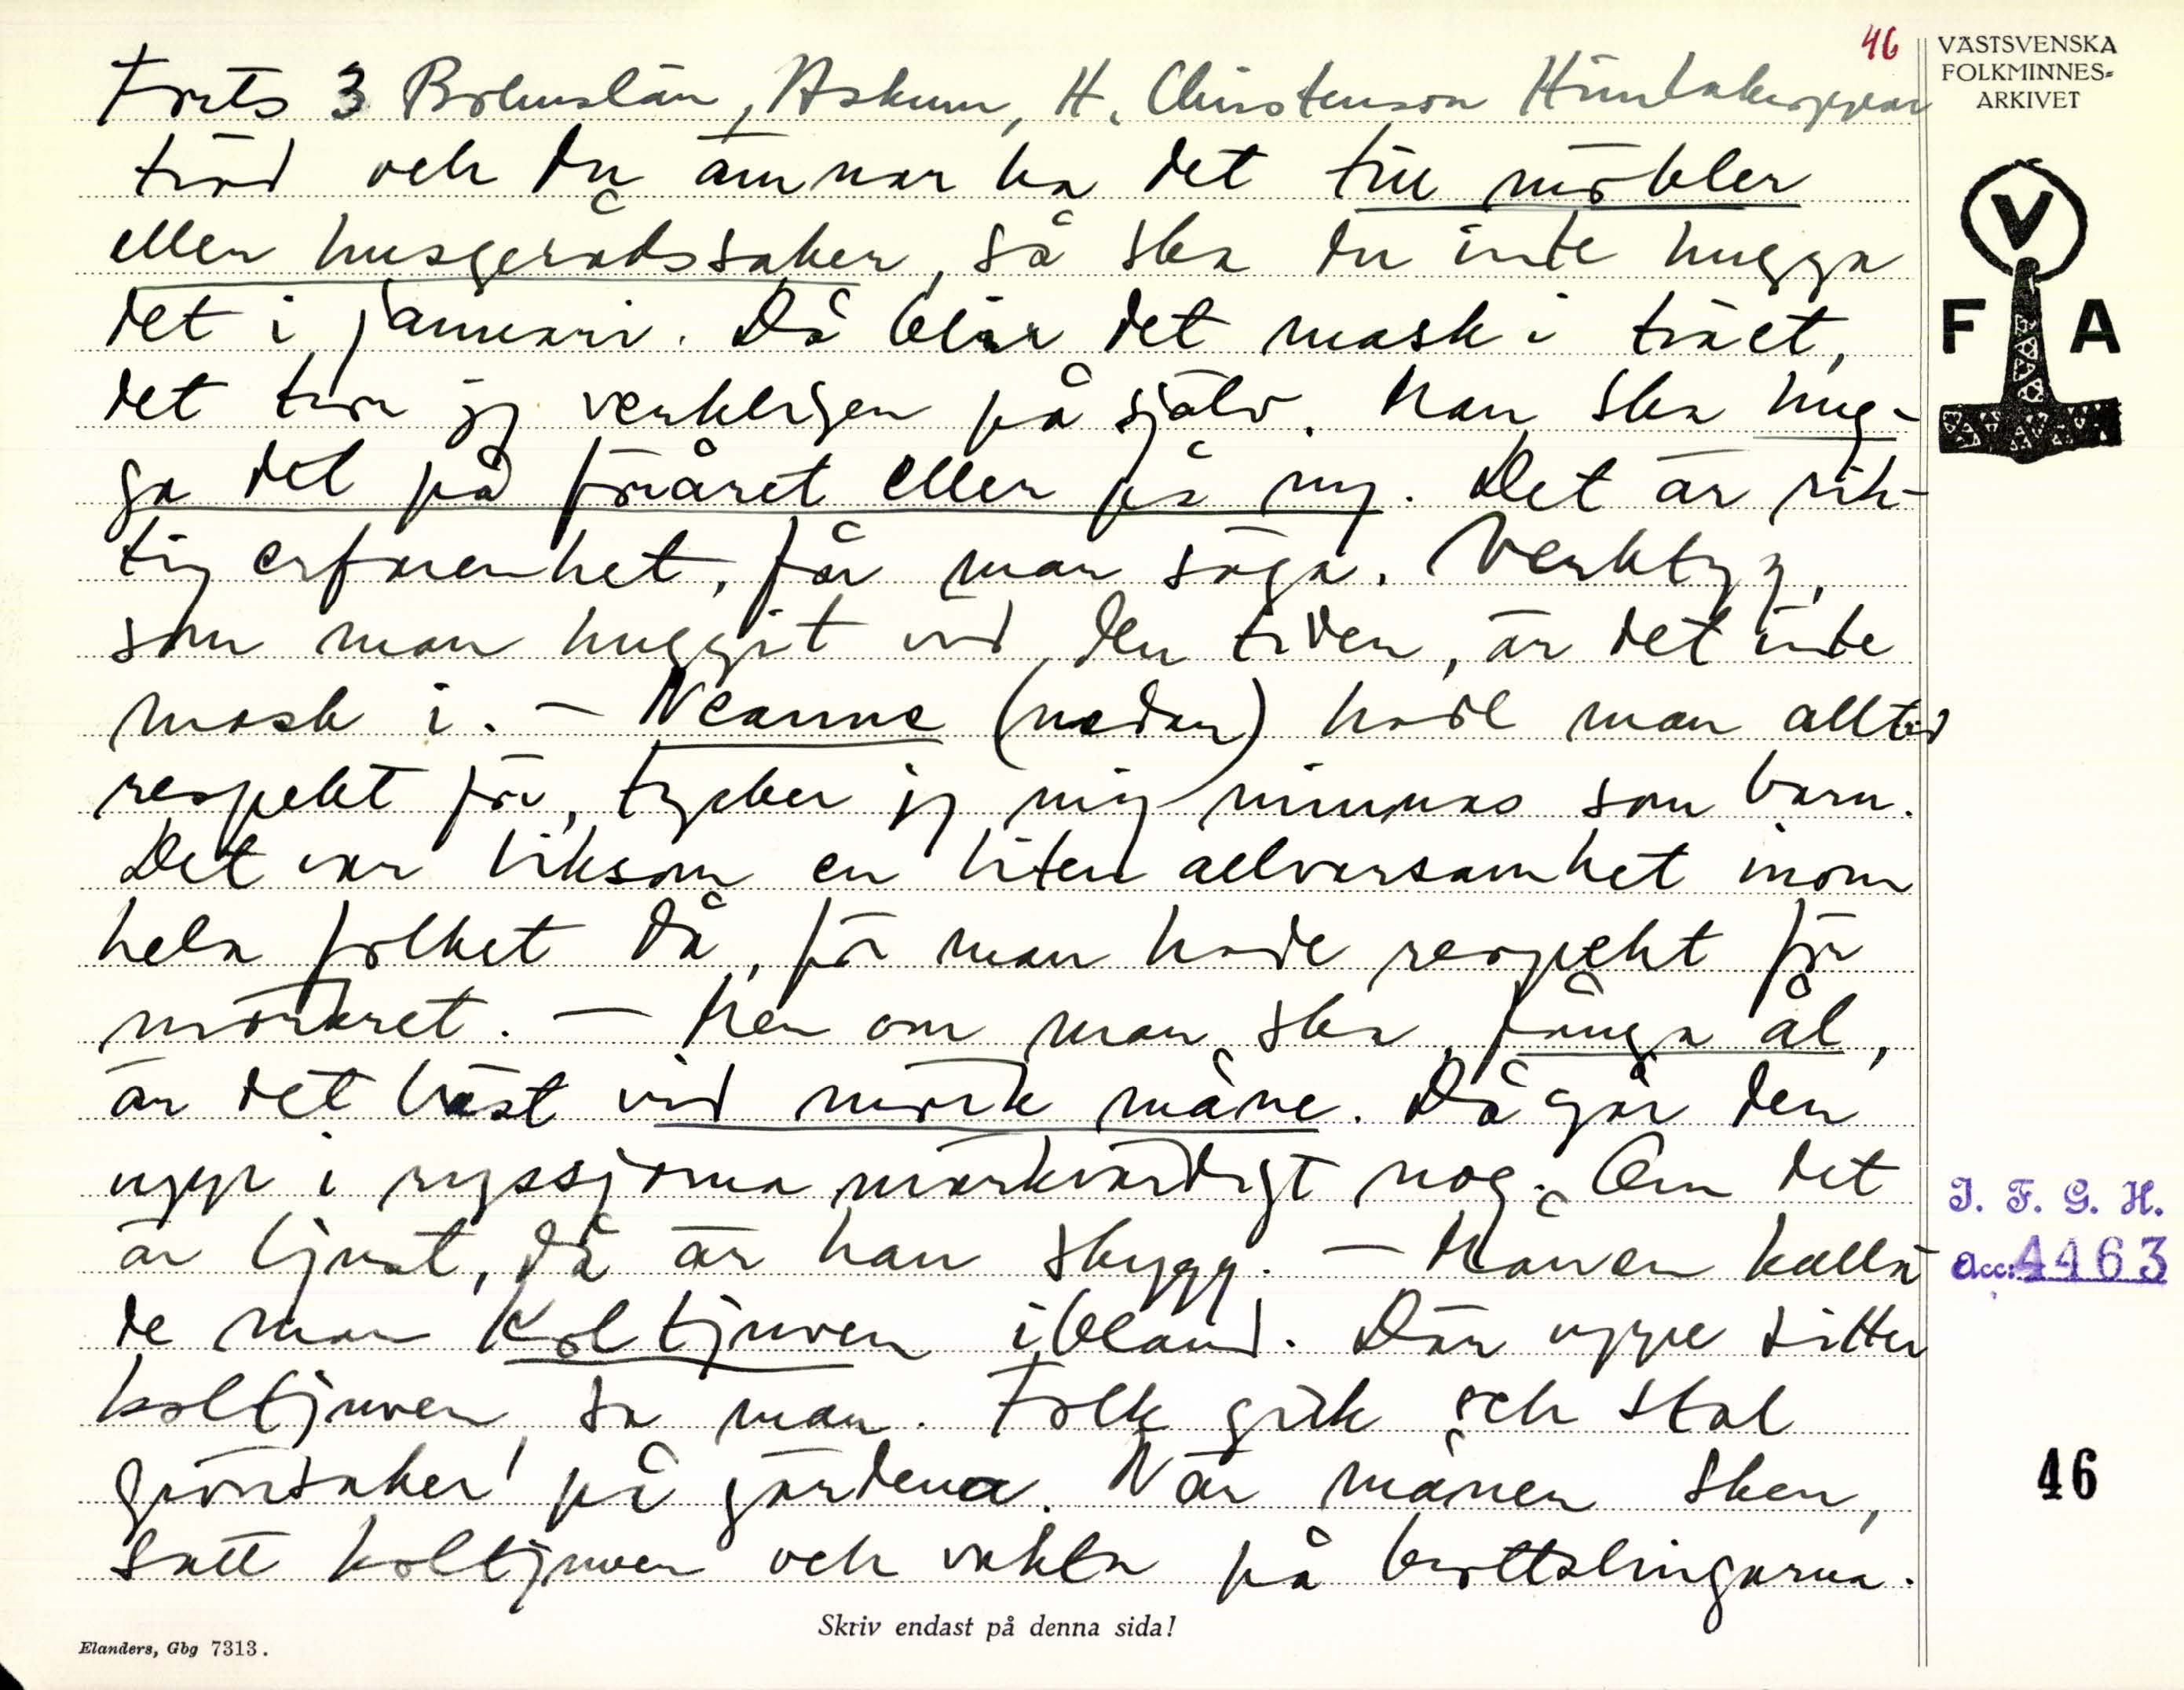 46
VÄSTSVENSKA
FOLKMINNES-
ARKIVET
Forts 3 Bohuslän, Askum, H. Christenson Himlakroppar
träd och du ämnar ha det till möbler
eller husgerådssaker, så ska du inte hugga
det i januari. Då blir det mask i träet,
det tror jg verkligen på själv. Man ska hug-
ga det på föråret eller på ny. Det är rik-
tig erfarenhet, får man säga. Verktyg,
som man huggit vid den tiden, är det inte
mask i. – Neanne (nedan) hade man alltid
respekt för, tycker jg mig minnas som barn.
Det var liksom en liten allvarsamhet inom
hela folket då, för man hade respekt för
mörkret. – Men om man ska fånga ål,
är det bäst vid mörk måne. Då går den
upp i ryssjorna märkvärdigt nog. Om det
är ljust, då är han skygg. – Månen kalla-
de man Koltjuven ibland. Där uppe sitter
koltjuven, sa man. Folk gick och stal
grönsaker på gårdena. När månen sken,
satt koltjuven och vakta på brottslingarna.
V
F A
I. F. G. H.
Acc: 4463
46
Skriv endast på denna sida!
Elanders, Gbg 7313.